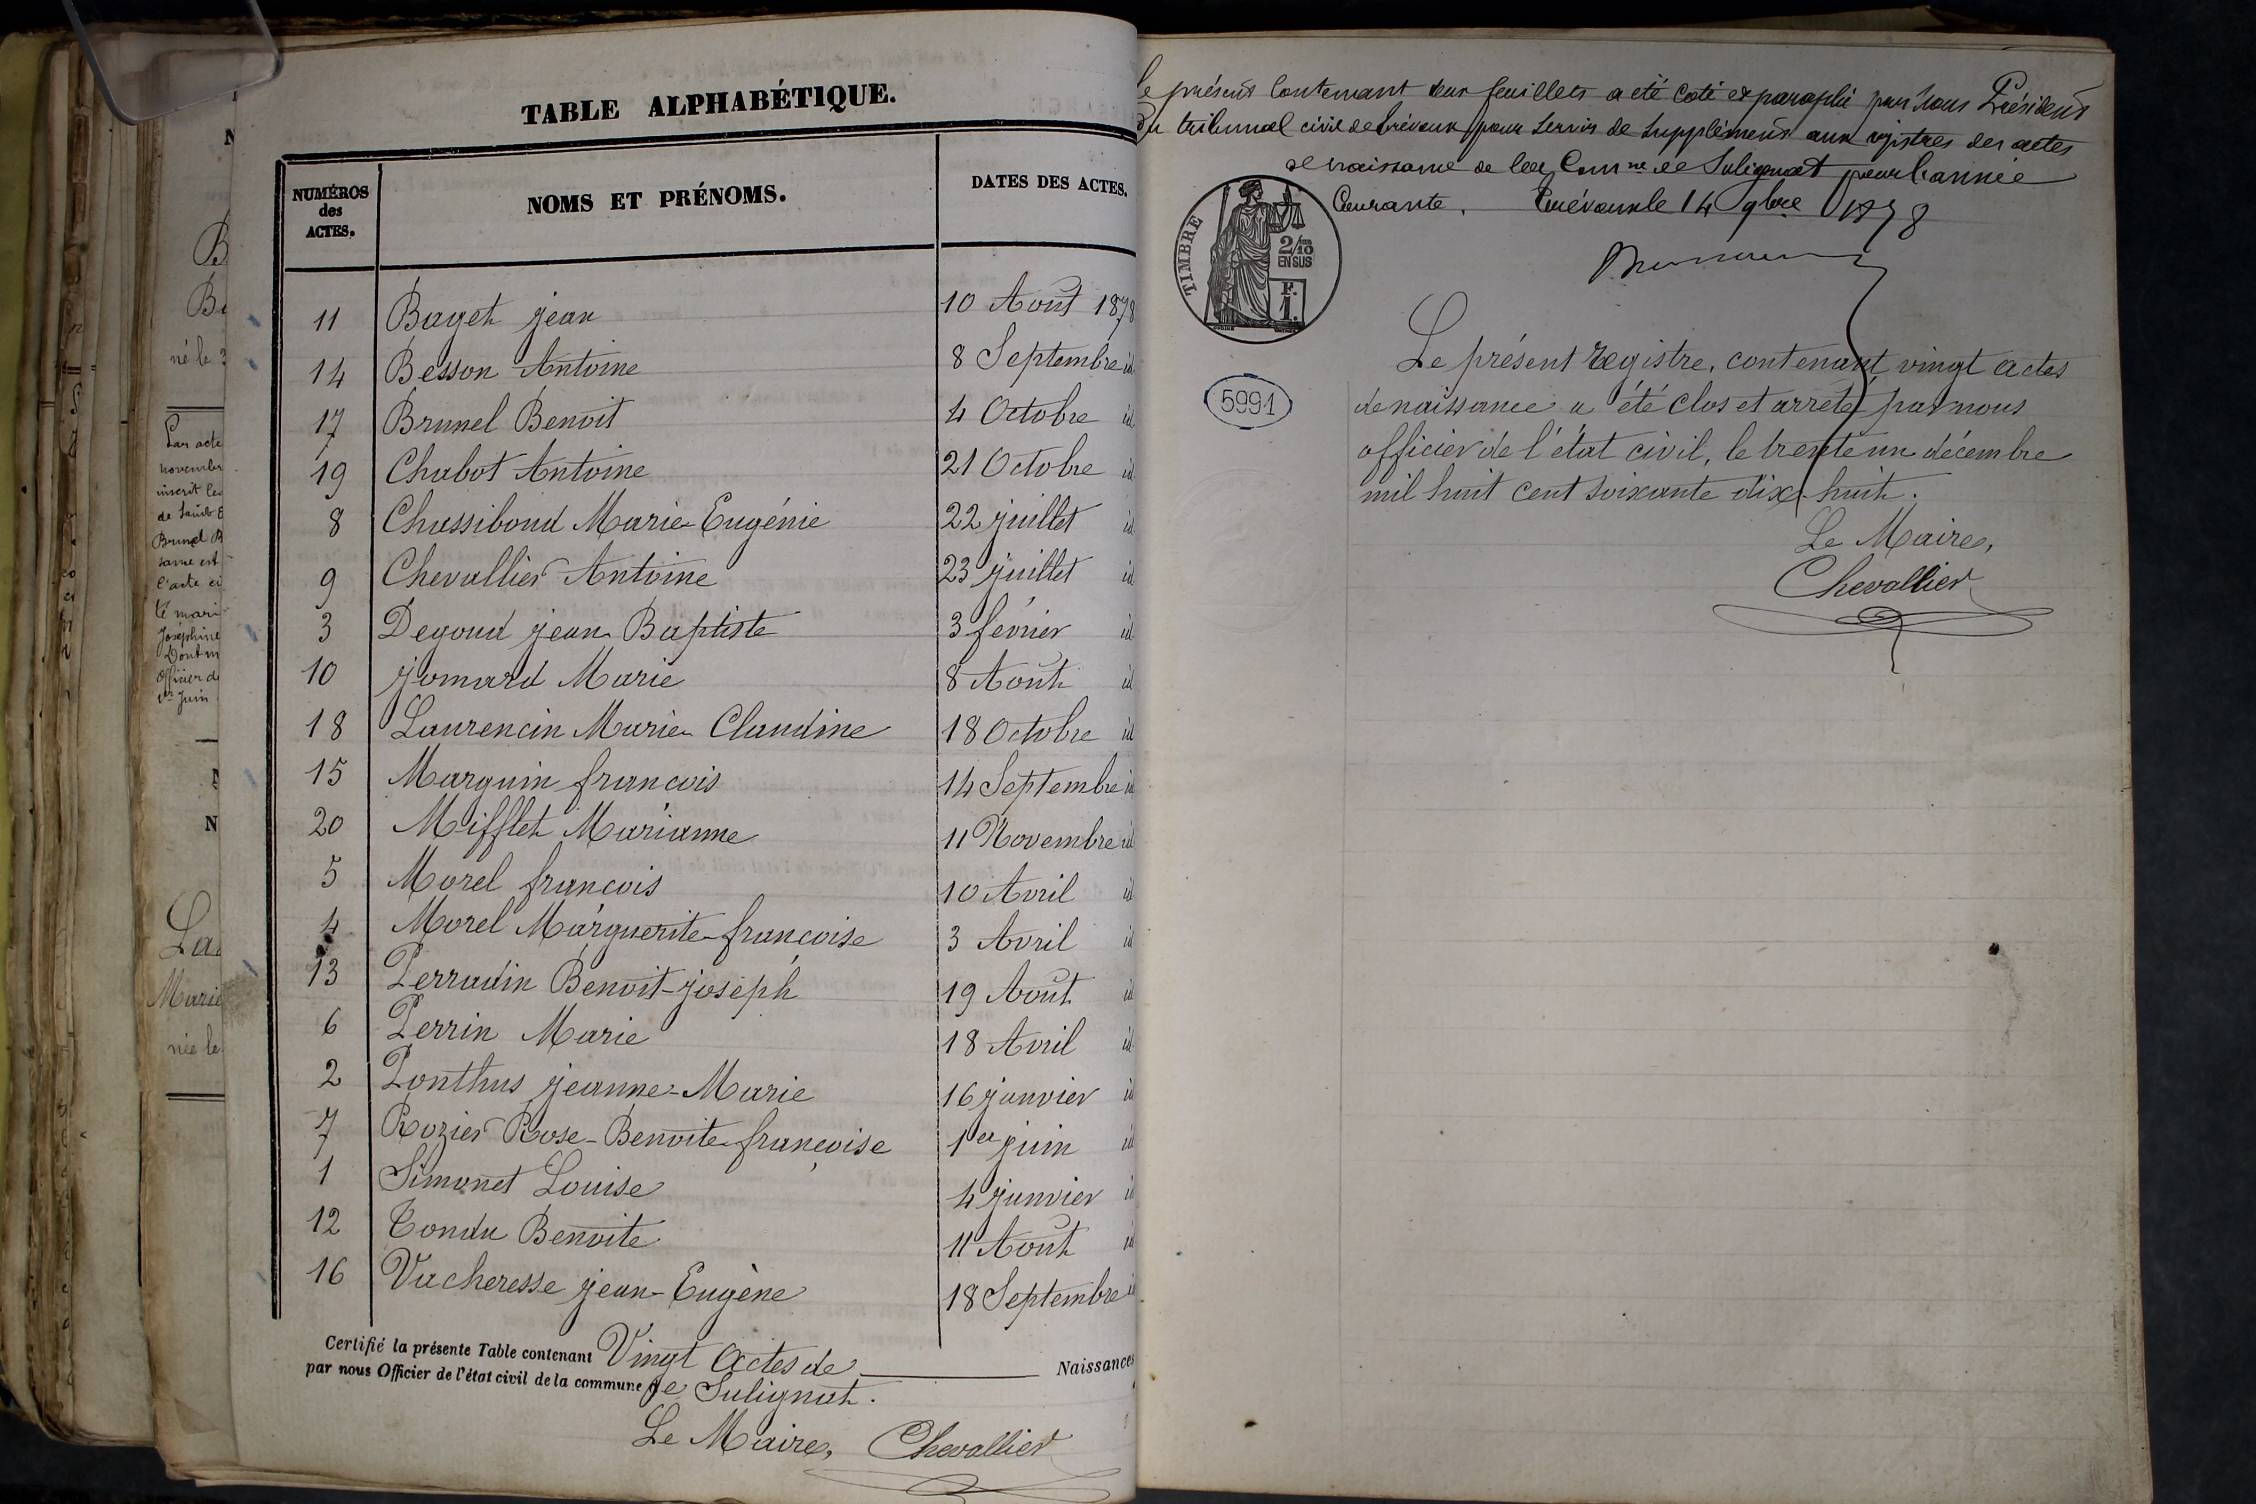 TABLE ALPHABÉTIQUE.
NUMÉROS des ACTES. NOMS ET PRÉNOMS. DATES DES ACTES.
11 Bayet jean 10 Aout 1878
14 Besson Antoine 8 Septembre id
17 Brunel Benoit 4 Octobre id
19 Chabot Antoine 21 Octobre id
8 Chassiboud Marie-Eugénie 22 juillet id
9 Chevallier Antoine 23 juillet id
3 Degoud jean-Baptiste 3 février id
10 jomard Marie 8 Aout id
18 Laurencin Marie-Claudine 18 Octobre id
15 Marguin francois 14 Septembre id
20 Mifflet Marianne 11 Novembre id
5 Morel francois 10 Avril id
4 Morel Marguerite-françoise 3 Avril id
13 Perradin Benoit-joseph 19 Aout id
6 Perrin Marie 18 Avril id
2 Ponthus jeanne-Marie 16 janvier id
7 Rozier Rose-Benoite-françoise 1er juin id
1 Simonet Louise 4 janvier id
12 Tondu Benoite 11 Aout id
16 Vacheresse jean-Eugène 18 Septembre id
Certifié la présente Table contenant Vingt Actes de Naissances
par nous Officier de l'état civil de la commune de Sulignat.
Le Maire, Chevallier
Le présent contenant deux feuillets a été coté et paraphé par nous Président
du tribunal civil de Trévoux pour servir de supplément aux registres des actes
de naissance de la Comne de Sulignat pour l'année
Courante. Trévoux le 14 9bre 1878
TIMBRE
2/10 EN SUS
F. 1.
5991
Le présent registre, contenant vingt actes
de naissance a été clos et arrêté par nous
officier de l'état civil, le trente un décembre
mil huit cent soixante dix-huit.
Le Maire,
Chevallier
Par acte
novembre
inscrit les
Brunel B
l'acte
Joséphine
Dont m
Officier d
Juin
né le 3
Marie
née le